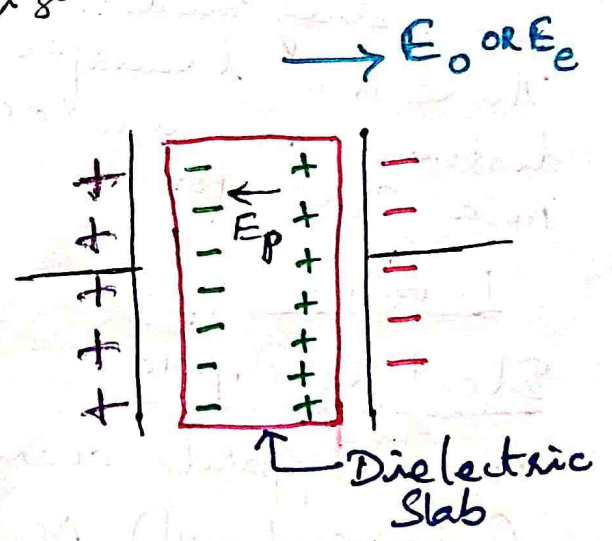 E₀ OR Eₑ
+ - + -
+ - + -
Eₚ
+ - + -
+ - + -
+ - + -
- +
- +
Dielectric
Slab